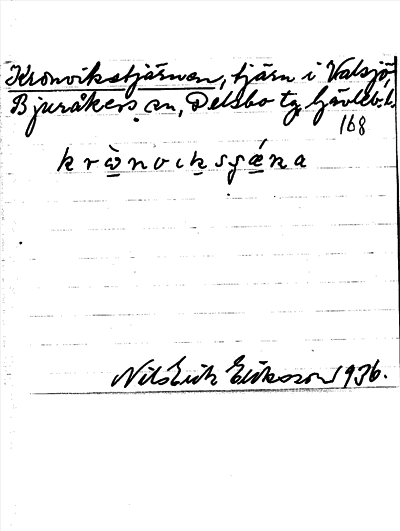 Kronvikstjärnen, tjärn i Valsjö,
Bjuråkers sn, Delsbo tg, Gävleb. l.
168
krònviksgǽna
Nils Erik Eriksson 1936.